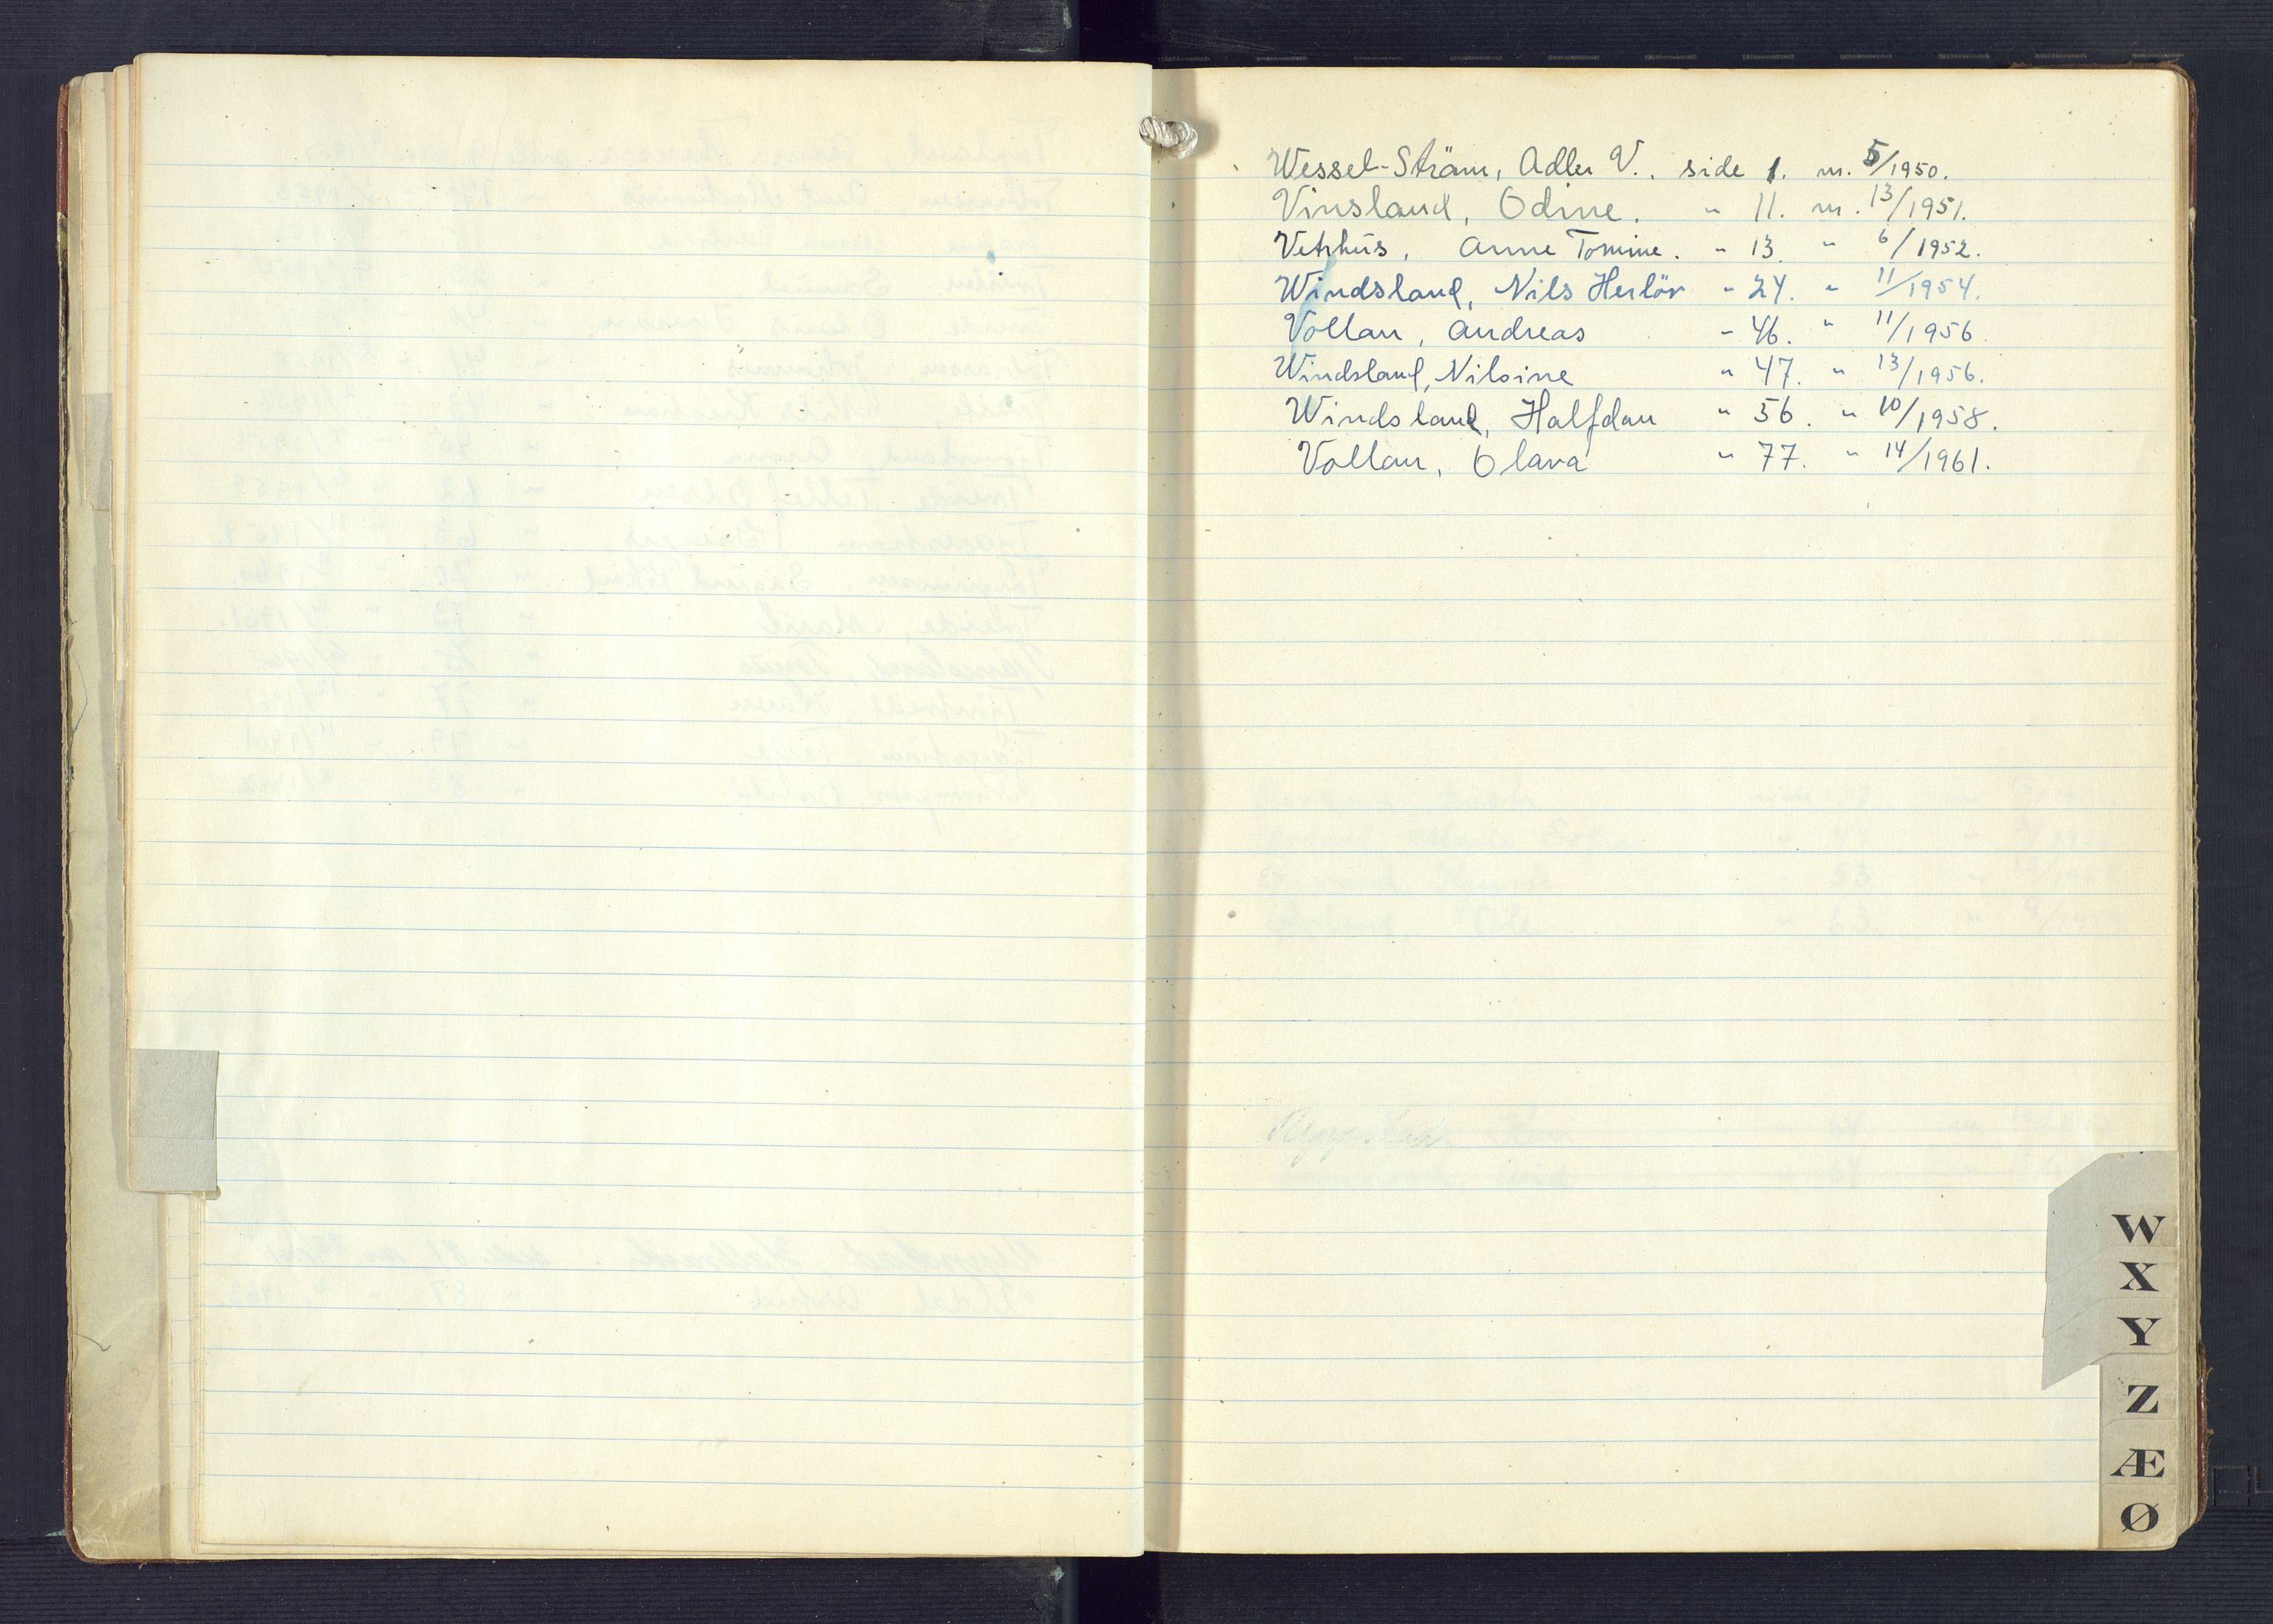 Wessel-Strøm, Adler V., side 1. nr. 5/1950.
Vinsland, Odine. " 11. nr. 13/1951.
Vetrhus, Anne Tomine. " 13. " 6/1952.
Windsland, Nils Herlöv " 24. " 11/1954.
Vollan, Andreas " 46. " 11/1956
Windsland, Nilsine " 47. " 13/1956.
Windsland, Halfdan " 56. " 10/1958.
Vollan, Olava " 77. " 14/1961.
W
X
Y
Z
Æ
Ø